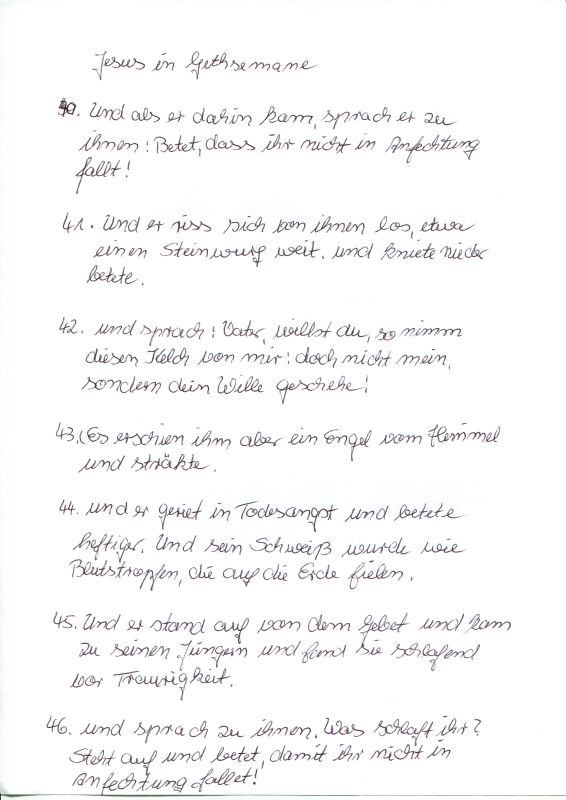 Jesus in Gethsemane
40. Und als er dahin kam, sprach er zu
ihnen: Betet, dass ihr nicht in Anfechtung
fallt!
41. Und er riss sich von ihnen los, etwa
einen Steinwurf weit. und kniete nieder
betete.
42. und sprach: Vater, willst du, so nimm
diesen Kelch von mir: doch nicht mein,
sondern dein Wille geschehe!
43.(Es erschien ihm aber ein Engel vom Himmel
und sträkte.
44. und er geriet in Todesangst und betete
heftiger. Und sein Schweiß wurde wie
Blutstropfen, die auf die Erde fielen.
45. Und er stand auf von dem Gebet und kam
zu seinen Jüngern und fand sie schlafend
vor Traurigkeit.
46. und sprach zu ihnen. Was schlaft ihr?
Steht auf und betet, damit ihr nicht in
Anfechtung fallet!